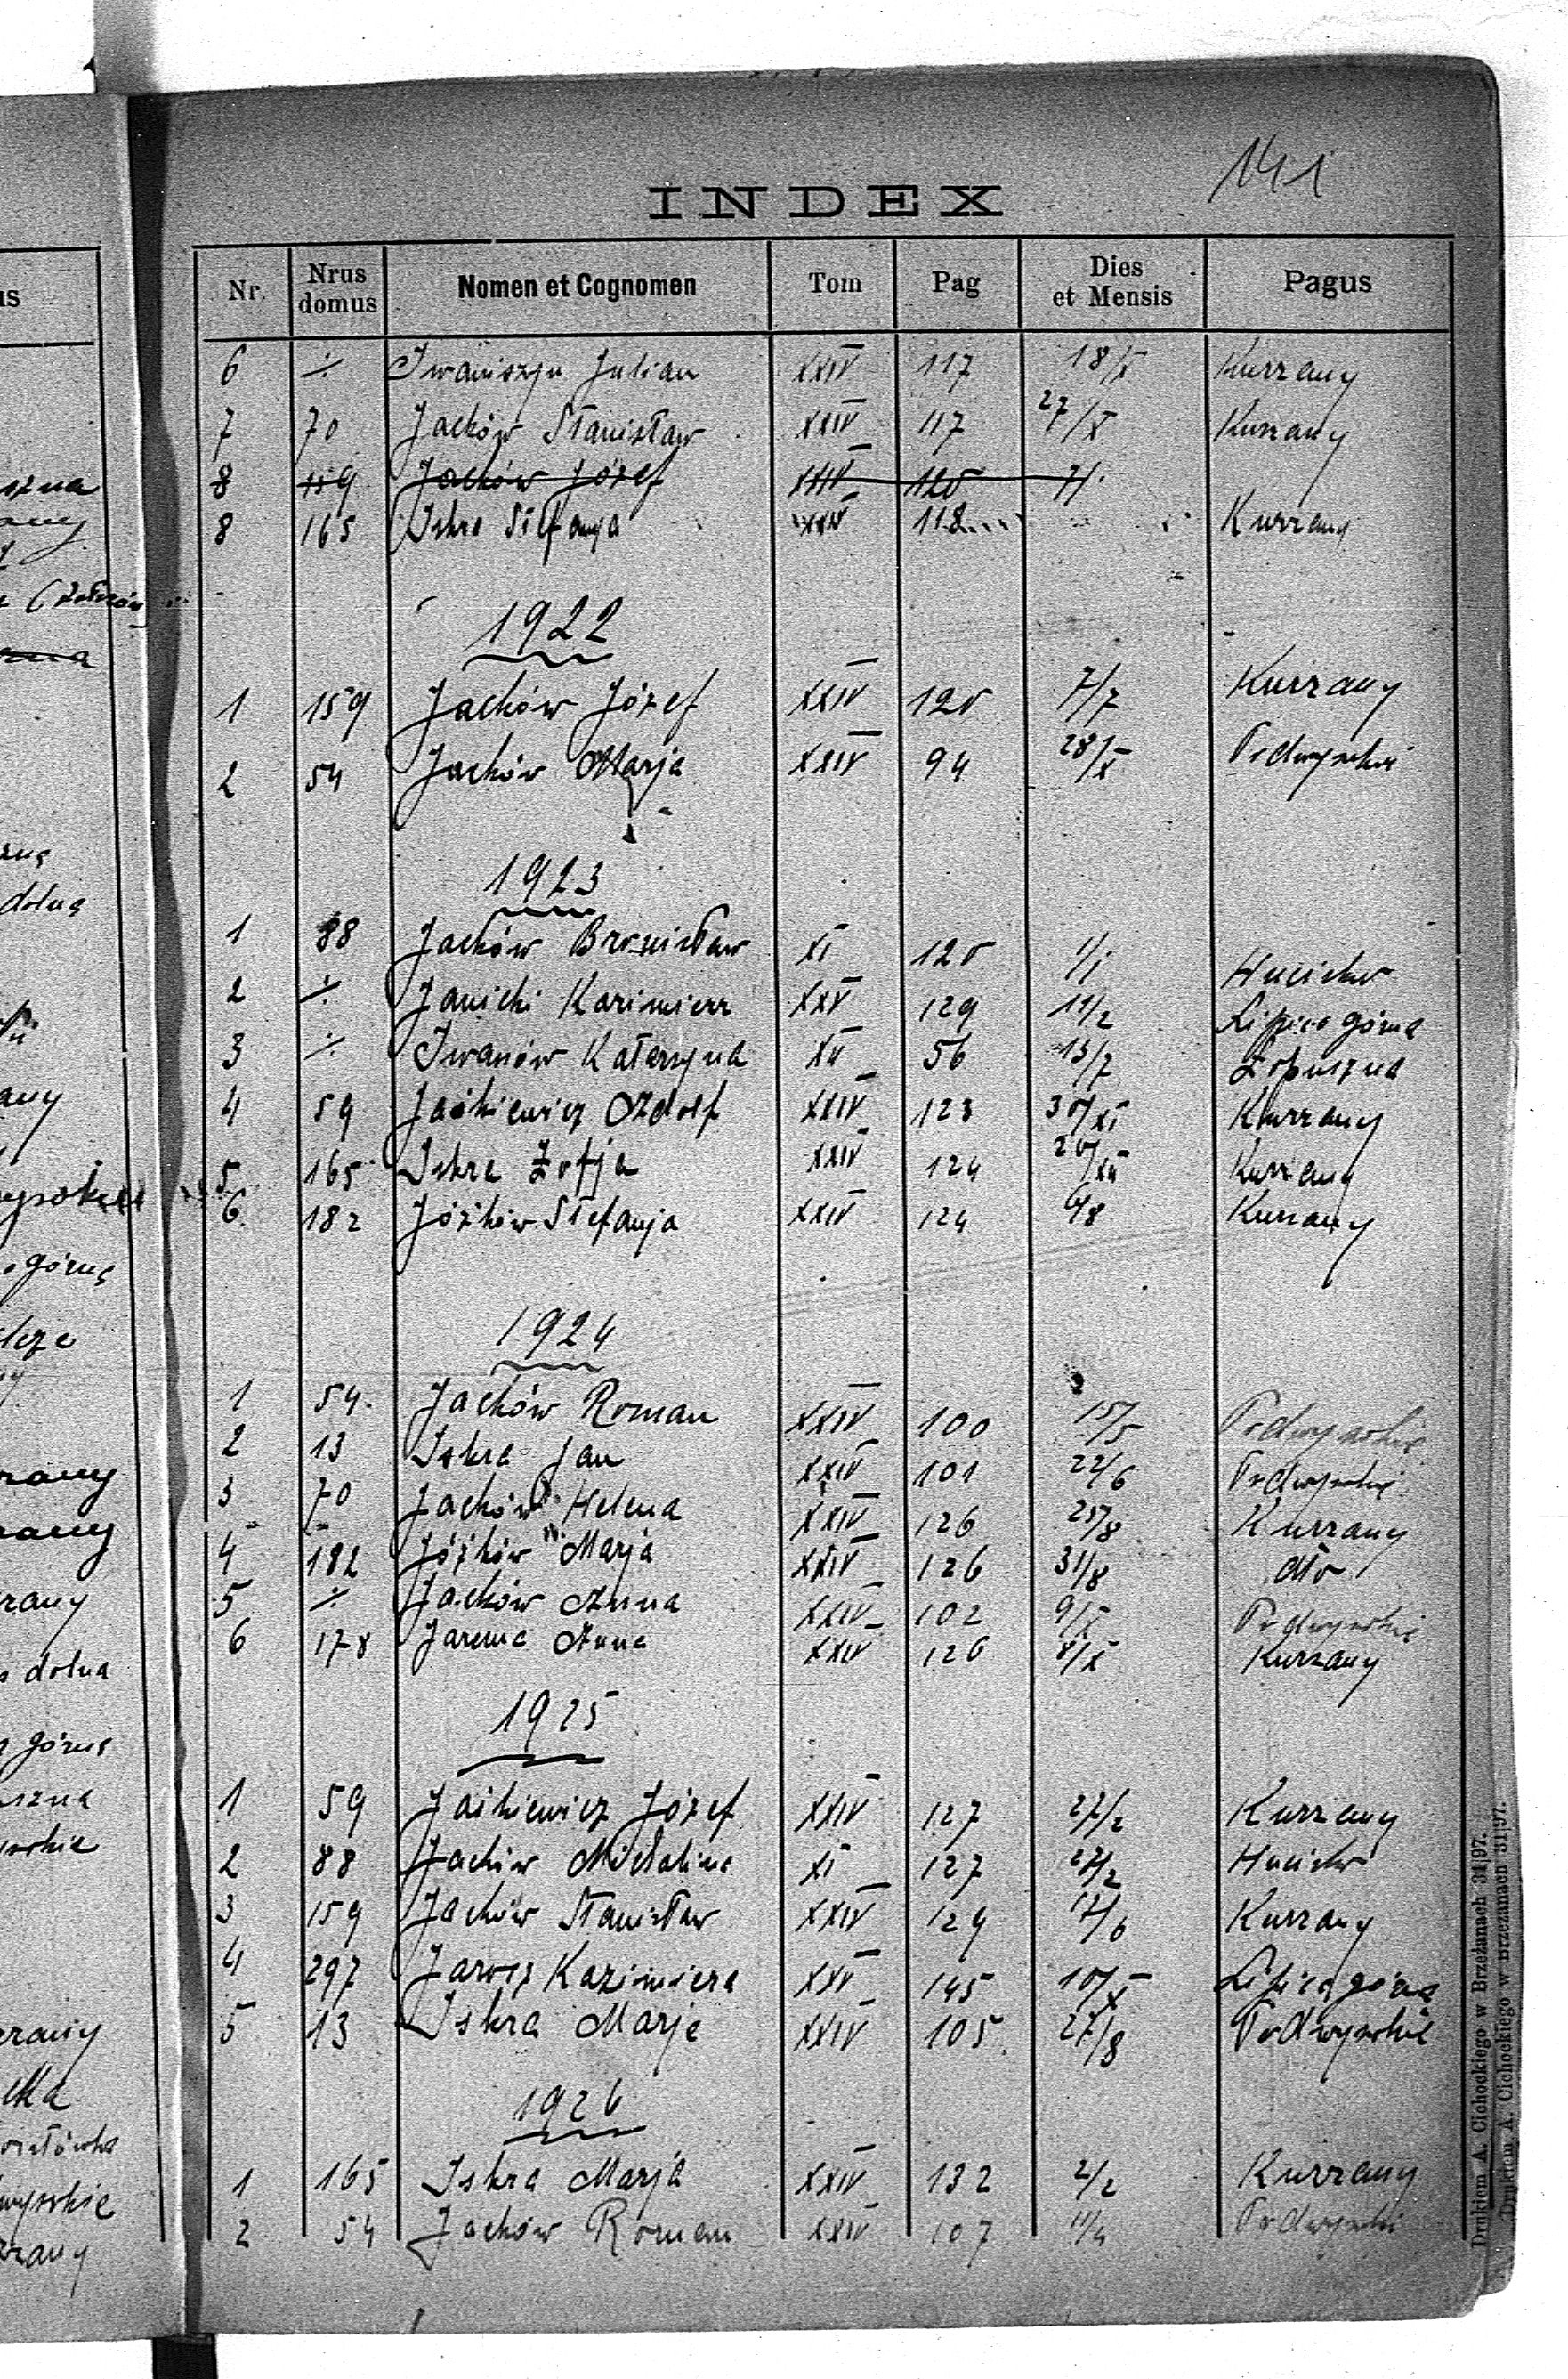 141
INDEX
Nr. Nrus domus Nomen et Cognomen Tom Pag Dies et Mensis Pagus
6 ./. Iwaniszyn Julian XXIV 117 18/X Kurzany
7 70 Jaćków Stanisław XXIV 117 27/X Kurzany
8 159 Jaćków Józef XXIV 120 7/.
8 165 Iskra Stefanja XXIV 118 Kurzany
1922
1 159 Jaćków Józef XXIV 120 7/7 Kurzany
2 54 Jaćków Marja XXIV 94 28/X Podwysokie
1923
1 88 Jaćków Bronisław XI 120 1/1 Hucisko
2 ./. Janicki Kazimierz XXV 129 12/2 Lipica górna
3 ./. Iwanów Katarzyna XII 56 13/7 Łopuszna
4 59 Jaśkiewicz Adolf XXIV 123 30/XI Kurzany
5 165 Iskra Zofja XXIV 124 20/XII Kurzany
6 182 Jóźków Stefanja XXIV 124 6/8 Kurzany
1924
1 54. Jaćków Roman XXIV 100 15/5 Podwysokie
2 13 Iskra Jan XXIV 101 22/6 Podwysokie
3 70 Jaćków Helena XXIV 126 25/8 Kurzany
4 182 Jóźków Marja XXIV 126 31/8 dto
5 ./. Jaćków Anna XXIV 102 9/X Podwysokie
6 178 Jarema Anna XXIV 126 8/X Kurzany
1925
1 59 Jaśkiewicz Józef XXIV 127 27/2 Kurzany
2 88 Jaćków Michalina XI 127 27/2 Hucisko
3 159 Jaćków Stanisław XXIV 129 17/6 Kurzany
4 297 Jarosz Kazimiera XXV 145 10/X Lipica górna
5 13 Iskra Marja XXIV 105. 27/8 Podwysokie
1926
1 165 Iskra Marja XXIV 132 2/2 Kurzany
2 54 Jaćków Roman XXIV 107 11/4 Podwysokie
Drukiem A. Cichockiego w Brzeżanach 31|97.
Drukiem A. Cichockiego w Brzeżanach 31|97.